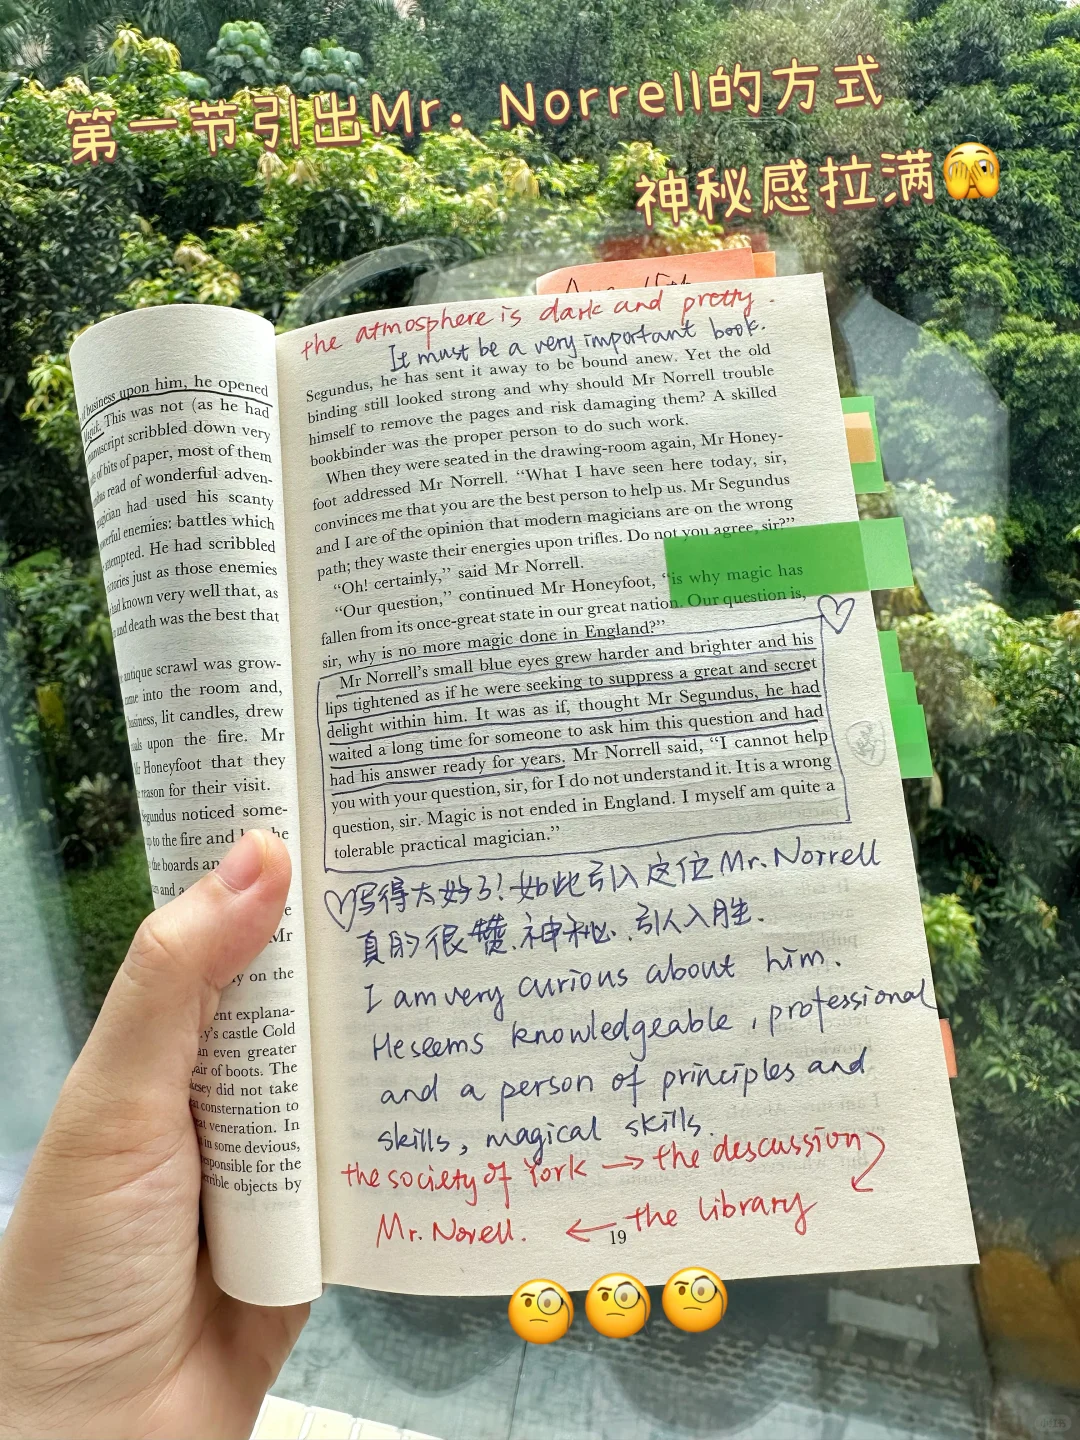 第一节引出Mr. Norrell的方式
神秘感拉满
the atmosphere is dark and pretty.
It must be a very important book.
Segundus, he has sent it away to be bound anew. Yet the old
binding still looked strong and why should Mr Norrell trouble
himself to remove the pages and risk damaging them? A skilled
bookbinder was the proper person to do such work.
When they were seated in the drawing-room again, Mr Honey-
foot addressed Mr Norrell. “What I have seen here today, sir,
convinces me that you are the best person to help us. Mr Segundus
and I are of the opinion that modern magicians are on the wrong
path; they waste their energies upon trifles. Do not you agree, sir?”
“Oh! certainly,” said Mr Norrell.
“Our question,” continued Mr Honeyfoot, “is why magic has
fallen from its once-great state in our great nation. Our question is,
sir, why is no more magic done in England?”
Mr Norrell’s small blue eyes grew harder and brighter and his
lips tightened as if he were seeking to suppress a great and secret
delight within him. It was as if, thought Mr Segundus, he had
waited a long time for someone to ask him this question and had
had his answer ready for years. Mr Norrell said, “I cannot help
you with your question, sir, for I do not understand it. It is a wrong
question, sir. Magic is not ended in England. I myself am quite a
tolerable practical magician.”
写得太好了!如此引入这位Mr. Norrell
真的很赞、神秘、引人入胜.
I am very curious about him.
He seems knowledgeable, professional
and a person of principles and
skills, magical skills.
the society of York → the descussion
Mr. Norell. ← the library
19
business upon him, he opened
This was not (as he had
manuscript scribbled down very
of bits of paper, most of them
read of wonderful adven-
magician had used his scanty
powerful enemies: battles which
attempted. He had scribbled
victories just as those enemies
had known very well that, as
and death was the best that
antique scrawl was grow-
came into the room and,
business, lit candles, drew
upon the fire. Mr
Mr Honeyfoot that they
reason for their visit.
Segundus noticed some-
up to the fire and
the boards
and a
Mr
on the
explana-
y’s castle Cold
an even greater
pair of boots. The
did not take
consternation to
veneration. In
in some devious,
responsible for the
terrible objects by